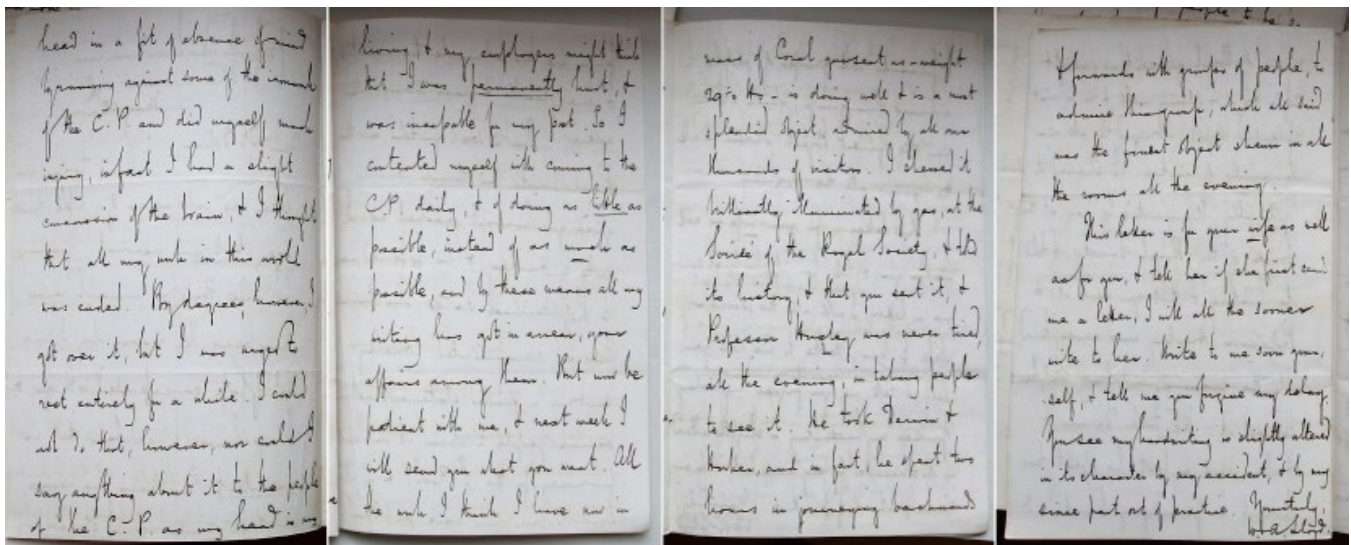 head in a fit of absence of mind
by running against some of the ironwork
of the C.P. and did myself much
injury, in fact I had a slight
concussion of the brain, & I thought
that all my work in this world
was ended. By degrees, however, I
got over it, but I was urged to
rest entirely for a while. I could
not do that, however, nor could I
say anything about it to the people
of the C.P. as my head is my
living, & my employers might think
that I was permanently hurt, &
was incapable for my post. So I
contented myself with coming to the
C.P. daily, & of doing as little as
possible, instead of as much as
possible, and by these means all my
writing has got in arrear, your
affairs among them. But now be
patient with me, & next week I
will send you what you want. All
the work, I think I have now in
mass of Coral you sent us - weight
29½ lbs - is doing well & is a most
splendid object, admired by all our
thousands of visitors. I shewed it
brilliantly illuminated by gas, at the
Soireé of the Royal Society, & told
its history, & that you sent it, &
Professor Huxley was never tired,
all the evening, in taking people
to see it. He took Darwin &
Hooker, and in fact, he spent two
hours in journeying backward
& forwards with groups of people, to
admire this group, which all said
was the finest object shewn in all
the rooms all the evening.
This letter is for your wife as well
as for you, & tell her if she first send
me a letter, I will all the sooner
write to her. Write to me soon your-
self, & tell me you forgive my delay.
You see my handwriting is slightly altered
in its character by my accident, & by my
since part out of practice. Yours truly,
W. A. Lloyd.